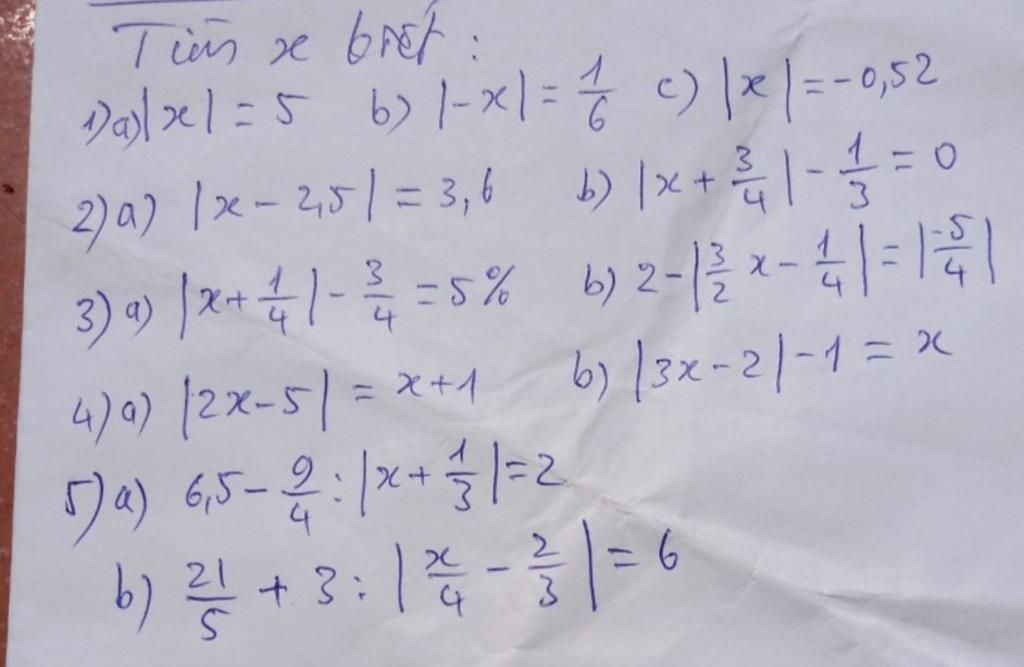 Tìm x biết :
1) a) |x| = 5 b) |-x| = 1/6 c) |x| = -0,52
2) a) |x - 2,5| = 3,6 b) |x + 3/4| - 1/3 = 0
3) a) |x + 1/4| - 3/4 = 5% b) 2 - |3/2 x - 1/4| = |-5/4|
4) a) |2x - 5| = x + 1 b) |3x - 2| - 1 = x
5) a) 6,5 - 9/4 : |x + 1/3| = 2
b) 21/5 + 3 : |x/4 - 2/3| = 6